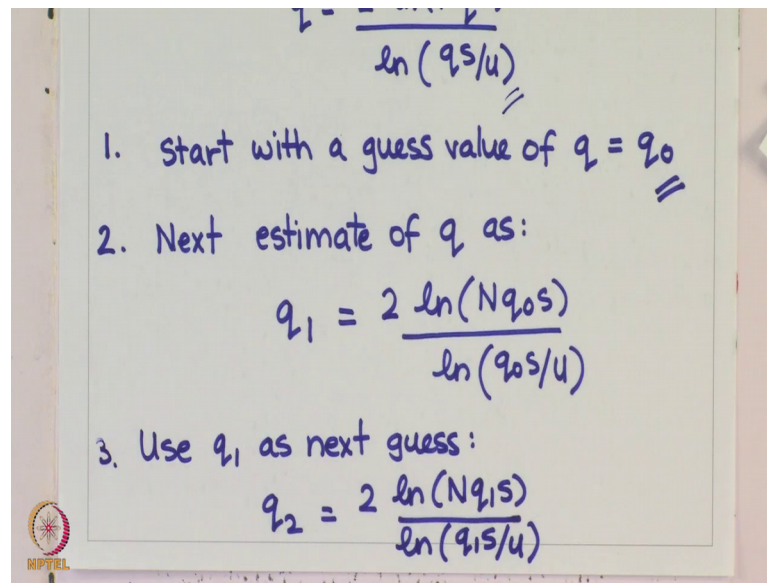 q =
ln (qs/u)
1. Start with a guess value of q = q₀
2. Next estimate of q as:
q₁ = 2 ln(Nq₀s)
ln (q₀s/u)
3. Use q₁ as next guess:
q₂ = 2 ln(Nq₁s)
ln (q₁s/u)
NPTEL